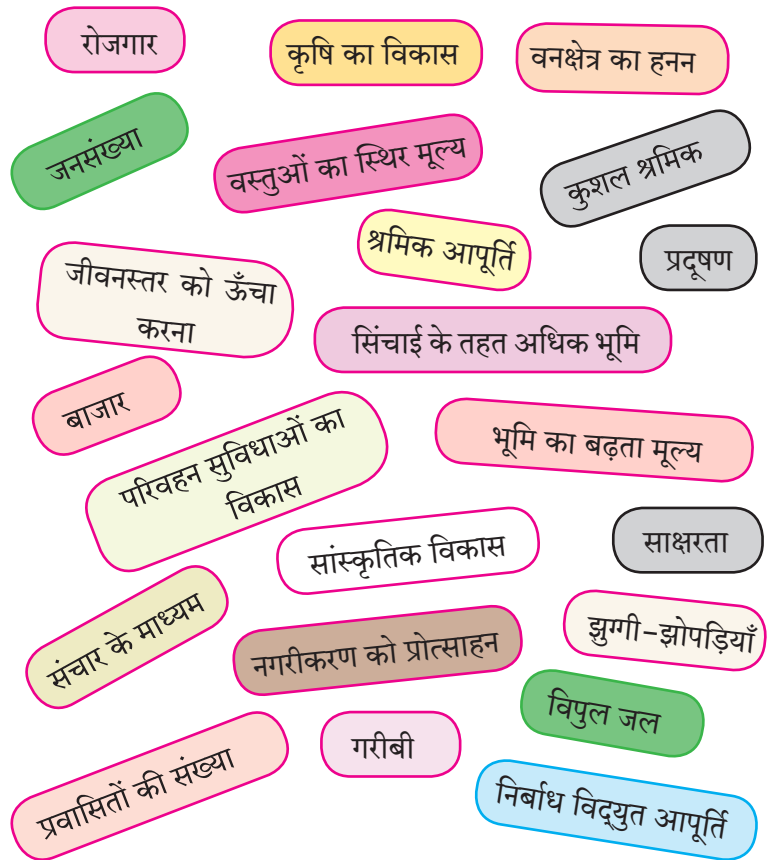 रोजगार
कृषि का विकास
वनक्षेत्र का हनन
जनसंख्या
वस्तुओं का स्थिर मूल्य
कुशल श्रमिक
श्रमिक आपूर्ति
प्रदूषण
जीवनस्तर को ऊँचा
करना
सिंचाई के तहत अधिक भूमि
बाजार
परिवहन सुविधाओं का
विकास
भूमि का बढ़ता मूल्य
सांस्कृतिक विकास
साक्षरता
संचार के माध्यम
नगरीकरण को प्रोत्साहन
झुग्गी-झोपड़ियाँ
विपुल जल
गरीबी
प्रवासितों की संख्या
निर्बाध विद्‌युत आपूर्ति